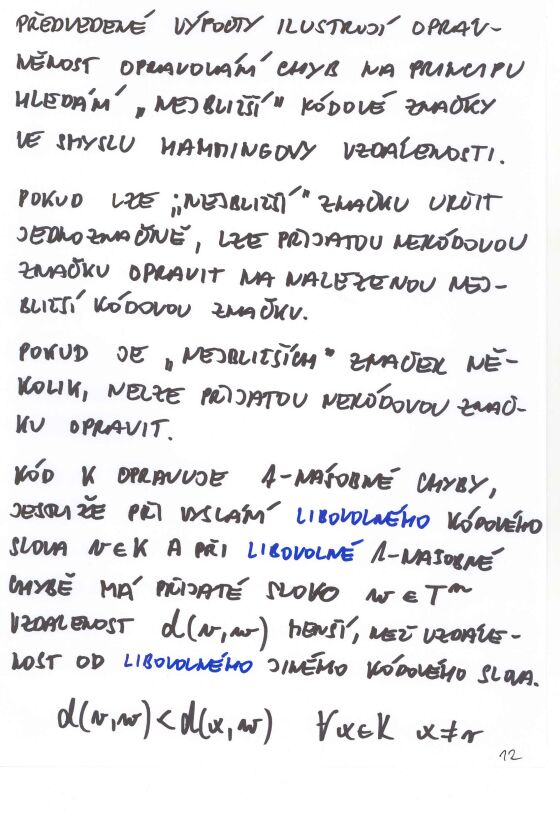 PŘEDVEDENÉ VÝPOČTY ILUSTRUJÍ OPRAV-
NĚNOST OPRAVOVÁNÍ CHYB NA PRINCIPU
HLEDÁNÍ „NEJBLIŽŠÍ" KÓDOVÉ ZNAČKY
VE SMYSLU HAMMINGOVY VZDÁLENOSTI.
POKUD LZE „NEJBLIŽŠÍ" ZNAČKU URČIT
JEDNOZNAČNĚ, LZE PŘIJATOU NEKÓDOVOU
ZNAČKU OPRAVIT NA NALEZENOU NEJ-
BLIŽŠÍ KÓDOVOU ZNAČKU.
POKUD JE „NEJBLIŽŠÍCH" ZNAČEK NĚ-
KOLIK, NELZE PŘIJATOU NEKÓDOVOU ZNAČ-
KU OPRAVIT.
KÓD K OPRAVUJE 1-NÁSOBNÉ CHYBY,
JESTLIŽE PŘI VYSLÁNÍ LIBOVOLNÉHO KÓDOVÉHO
SLOVA v∈K A PŘI LIBOVOLNÉ 1-NÁSOBNÉ
CHYBĚ MÁ PŘIJATÉ SLOVO w∈Tⁿ
VZDÁLENOST d(v,w) MENŠÍ, NEŽ VZDÁLE-
NOST OD LIBOVOLNÉHO JINÉHO KÓDOVÉHO SLOVA.
d(v,w)<d(x,w) ∀x∈K x≠v
12